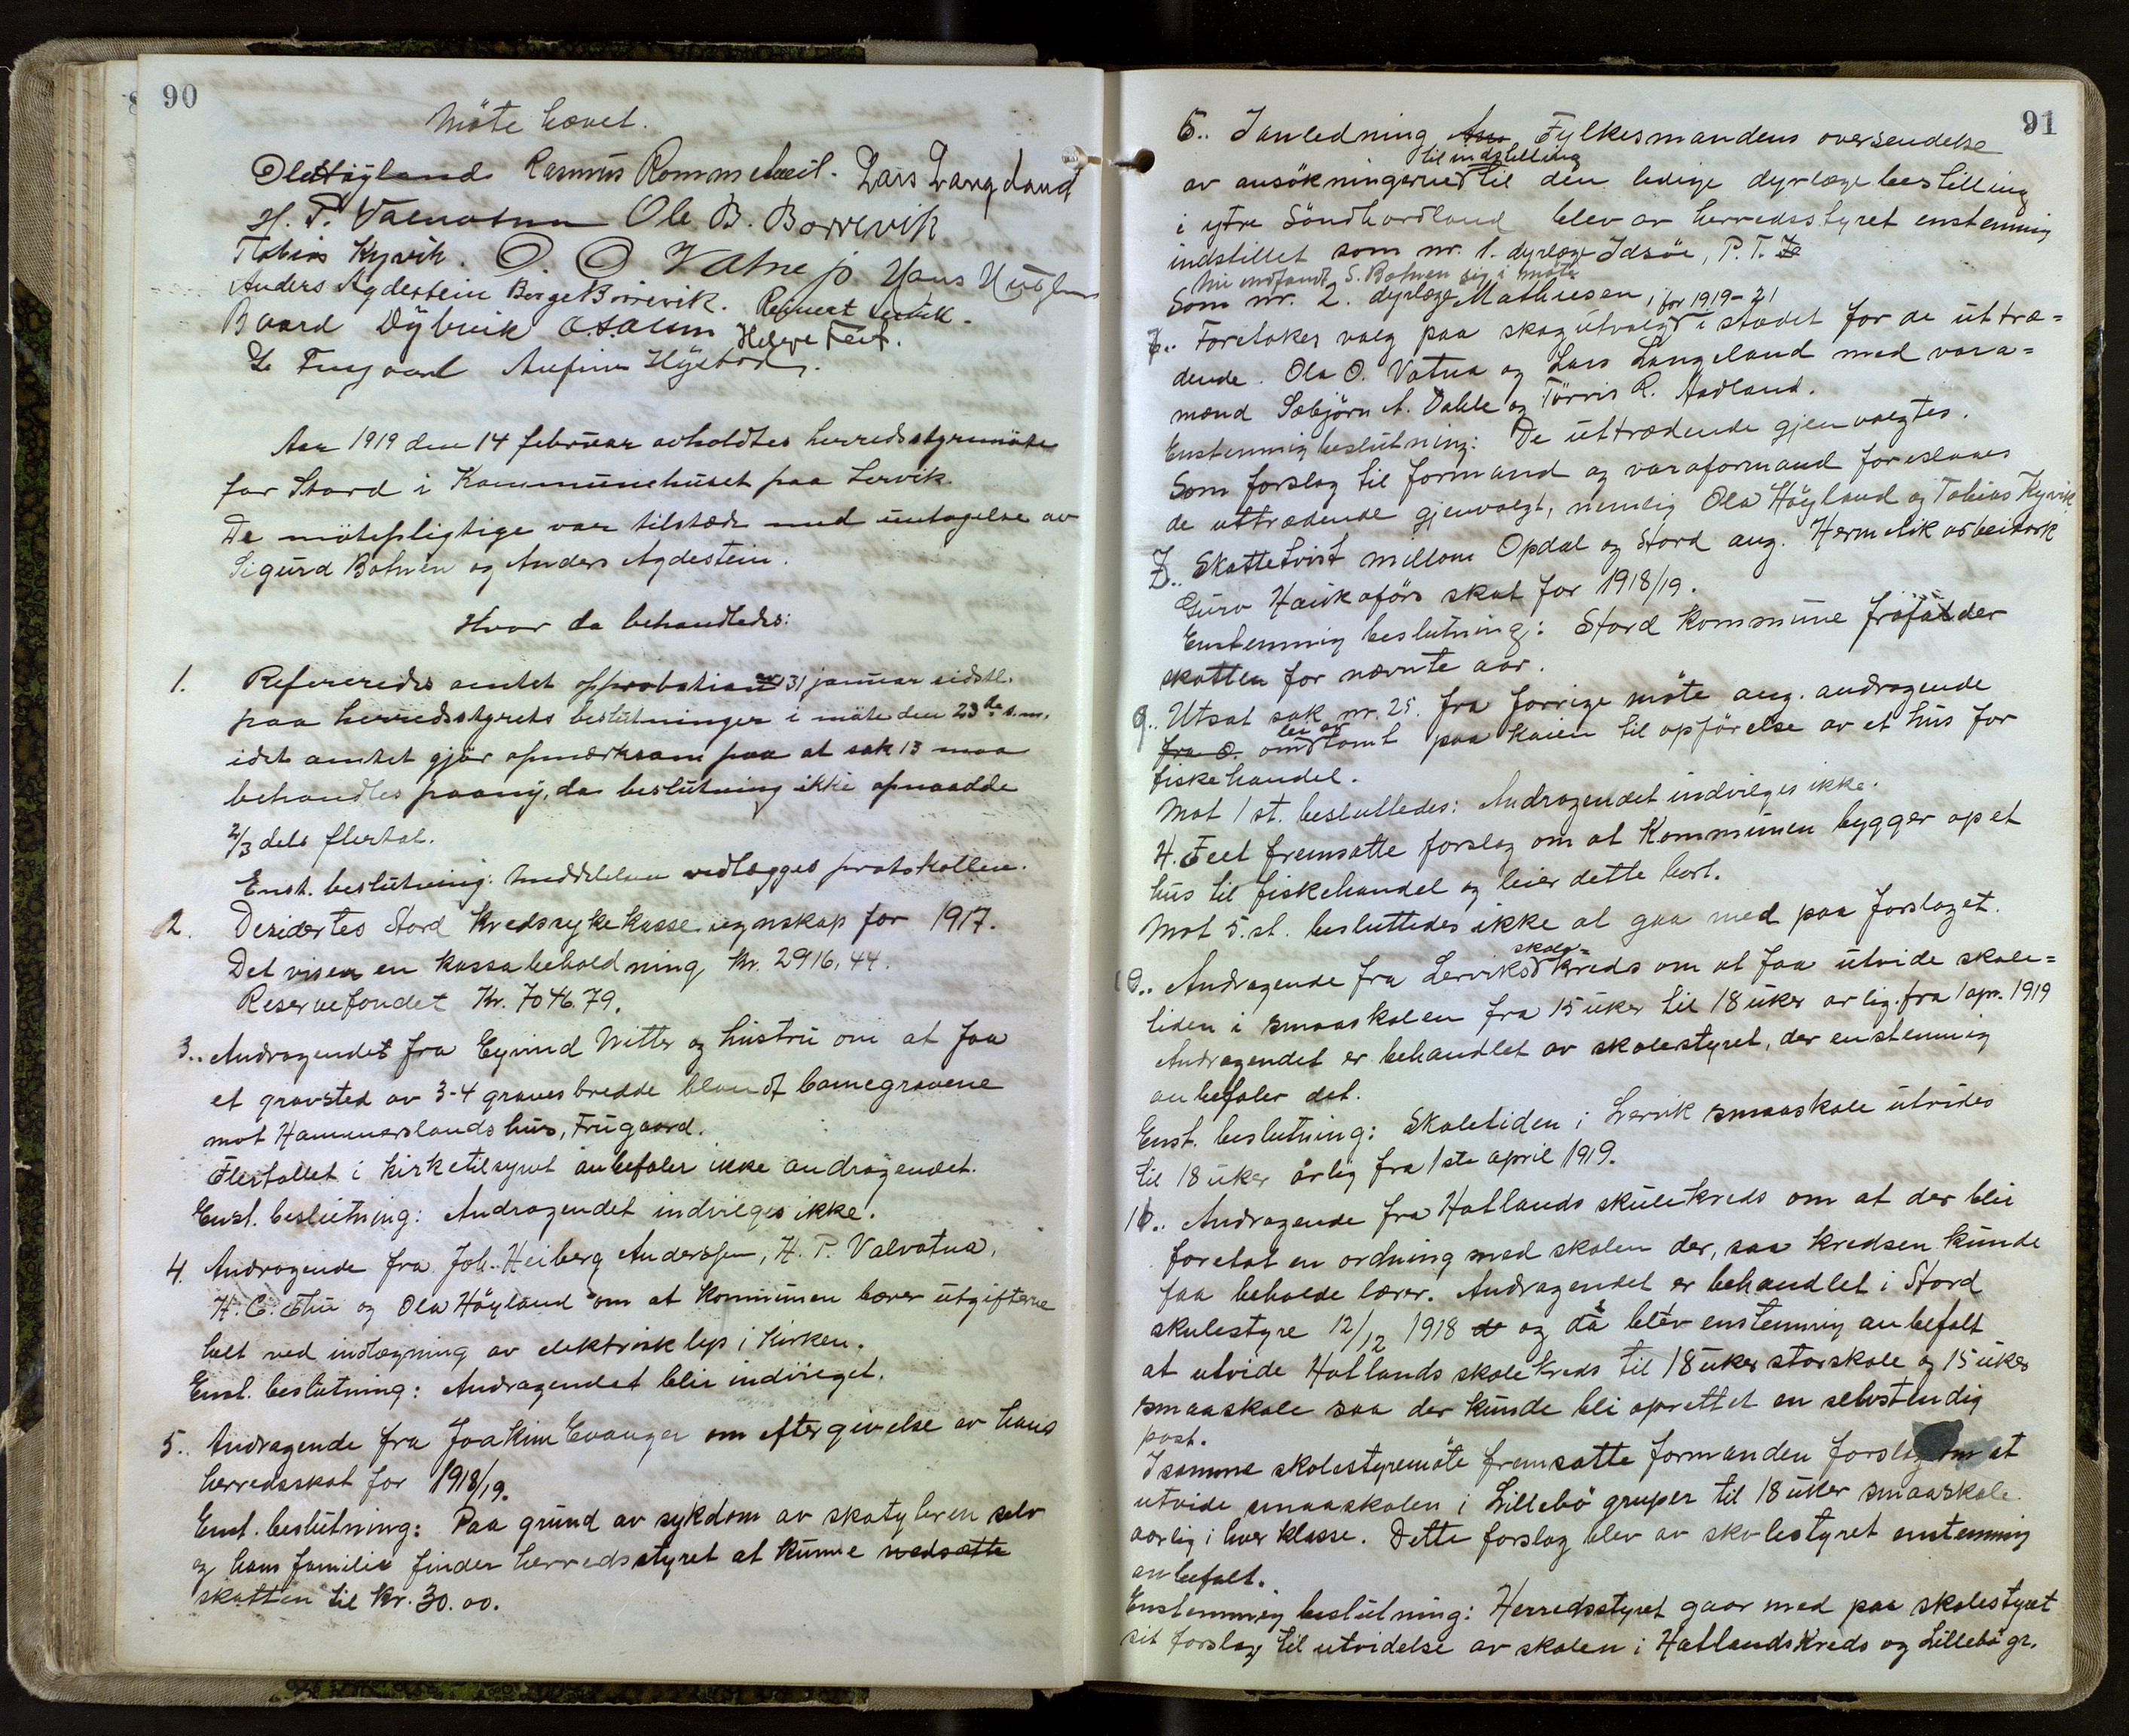 90
Möte hævet.
Ola Höyland Rasmus Rommetveit. Lars Langeland
H. P. Valvatna Ole B. Borrevik
Tobias Kyvik. O. O Vatne jr. Hans
Anders Agdestein Børge Borrevik.
Baard Dybvik Helge Feet.
Aar 1919 den 14 februar avholdtes herredsstyremöte
for Stord i Kommunehuset paa Lervik.
De mötepligtige var tilstæde med undtagelse av
Sigurd Bohnen og Anders Agdestein.
Hvor da behandledes:
1. Refereredes amtet approbation av 31 januar sidstl.
paa herredsstyrets beslutninger i möte den 23de s.m.
idet amtet gjör opmærksom paa at sak 13 maa
behandles paany, da beslutning ikke opnaadde
2/3 dels flertal.
Enst. beslutning: Meddelelsen vedlægges protokollen.
2. Desidertes Stord Kredssykekasse regnskap for 1917.
Det viser en kassabeholdning kr. 2916,44.
Reservefondet Kr. 7046.79.
3.. Andragendet fra Eyvind Witter og hustru om at faa
et gravsted av 3-4 graves bredde blandt barnegravene
mot Hammerslands hus, Frugaard.
Flertallet i kirketilsynet anbefaler ikke andragendet.
Enst. beslutning: Andragendet indvilges ikke.
4. Andragende fra Joh. Heiberg Anderssen, H. P. Valvatna,
H. C. Thu og Ola Höyland om at kommunen bærer utgifterne
helt ved indlægning av elektrisk lys i Kirken.
Enst. beslutning: Andragendet blir indvilget.
5.. Andragende fra Joakim Evanger om eftergivelse av hans
herredsskat for 1918/19.
Enst. beslutning: Paa grund av sykdom av skatyderen selv
og hans familie finder herredsstyret at kunne nedsætte
skatten til kr. 30.00.
91
6.. I anledning Fylkesmandens oversendelse
til indstilling
av ansökningerne til den ledige dyrlægebestilling
i ytre Söndhordland blev av herredsstyret enstemmig
indstillet som nr. 1. dyrlæge Idsöe, P. T.
Nu indfandt S. Bohnen sig i möte
Som nr. 2. dyrlæge Mathiesen, for 1919-21
7.. Foretokes valg paa skogutvalg i stedet for de uttræ=
dende. Ola O. Vatna og Lars Langeland med vara=
mænd Sæbjörn A. Dahle og Törris R. Aadland.
Enstemmig beslutning: De uttrædende gjenvalgtes.
Som forslag til formand og varaformand foreslaaes
de uttrædende gjenvalgt, nemlig Ola Höyland og Tobias Kyvik.
8.. Skattetvist millom Opdal og Stord ang. Hermetik arbeidersk
Guro Haukaförs skat for 1918/19.
Enstemmig beslutning: Stord kommune frafalder
skatten for nævnte aar.
9.. Utsat sak nr. 25. fra forrige möte ang. andragende
leie av
fra O. om tomt paa kaien til opförelse av et hus for
fiskehandel.
Mot 1 st. besluttedes: Andragendet indvilges ikke.
H. Feet fremsatte forslag om at Kommunen bygger op et
hus til fiskehandel og leier dette bort.
Mot 5. st. besluttedes ikke at gaa med paa forslaget.
skole=
10.. Andragende fra Lerviks kreds om at faa utvide skole=
tiden i smaaskolen fra 15 uker til 18 uker arlig. fra 1 apr. 1919
Andragendet er behandlet av skolestyret, der enstemmig
anbefaler det.
Enst. beslutning: Skoletiden i Lervik smaaskole utvides
til 18 uker årlig fra 1ste april 1919.
11.. Andragende fra Hatlands skulekreds om at der blir
foretat en ordning med skolen der, saa kredsen kunde
faa beholde lærer. Andragendet er behandlet i Stord
skulestyre 12/12 1918 og da blev enstemmig anbefalt
at utvide Hatlands skolekreds til 18 uker storskole og 15 uker
smaaskole saa der kunde bli oprettet en selvstendig
post.
I samme skolestyremöte fremsatte formanden forslag om at
utvide smaaskolen i Lillebö gruper til 18 uker smaaskole
aarlig i hver klasse. Dette forslag blev av skolestyret enstemmig
anbefalt.
Enstemmig beslutning: Herredsstyret gaar med paa skolestyret
sit forslag til utvidelse av skolen i Hatlands Kreds og Lillebö gr.